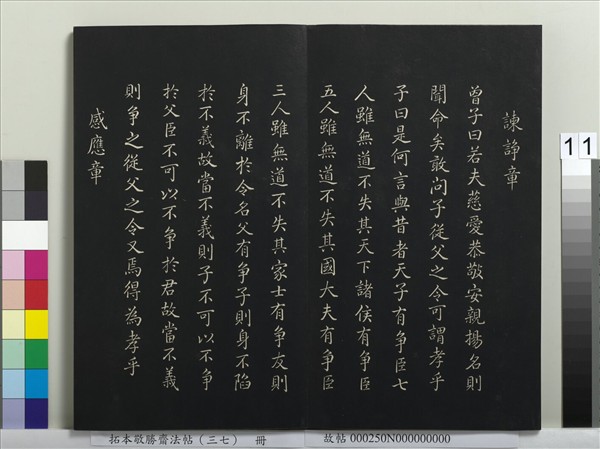 諫諍章
曾子曰若夫慈愛恭敬安親揚名則
聞命矣敢问子從父之令可謂孝乎
子曰是何言與昔者天子有争臣七
人雖無道不失其天下諸侯有争臣
五人雖無道不失其國大夫有争臣
三人雖無道不失其家士有争友則
身不離於令名父有争子則身不陷
於不義故當不義則子不可以不争
於父臣不可以不争於君故當不義
則争之從父之令又焉得為孝乎
感應章
拓本敬勝齋法帖(三七) 冊
故帖 000250N000000000
11